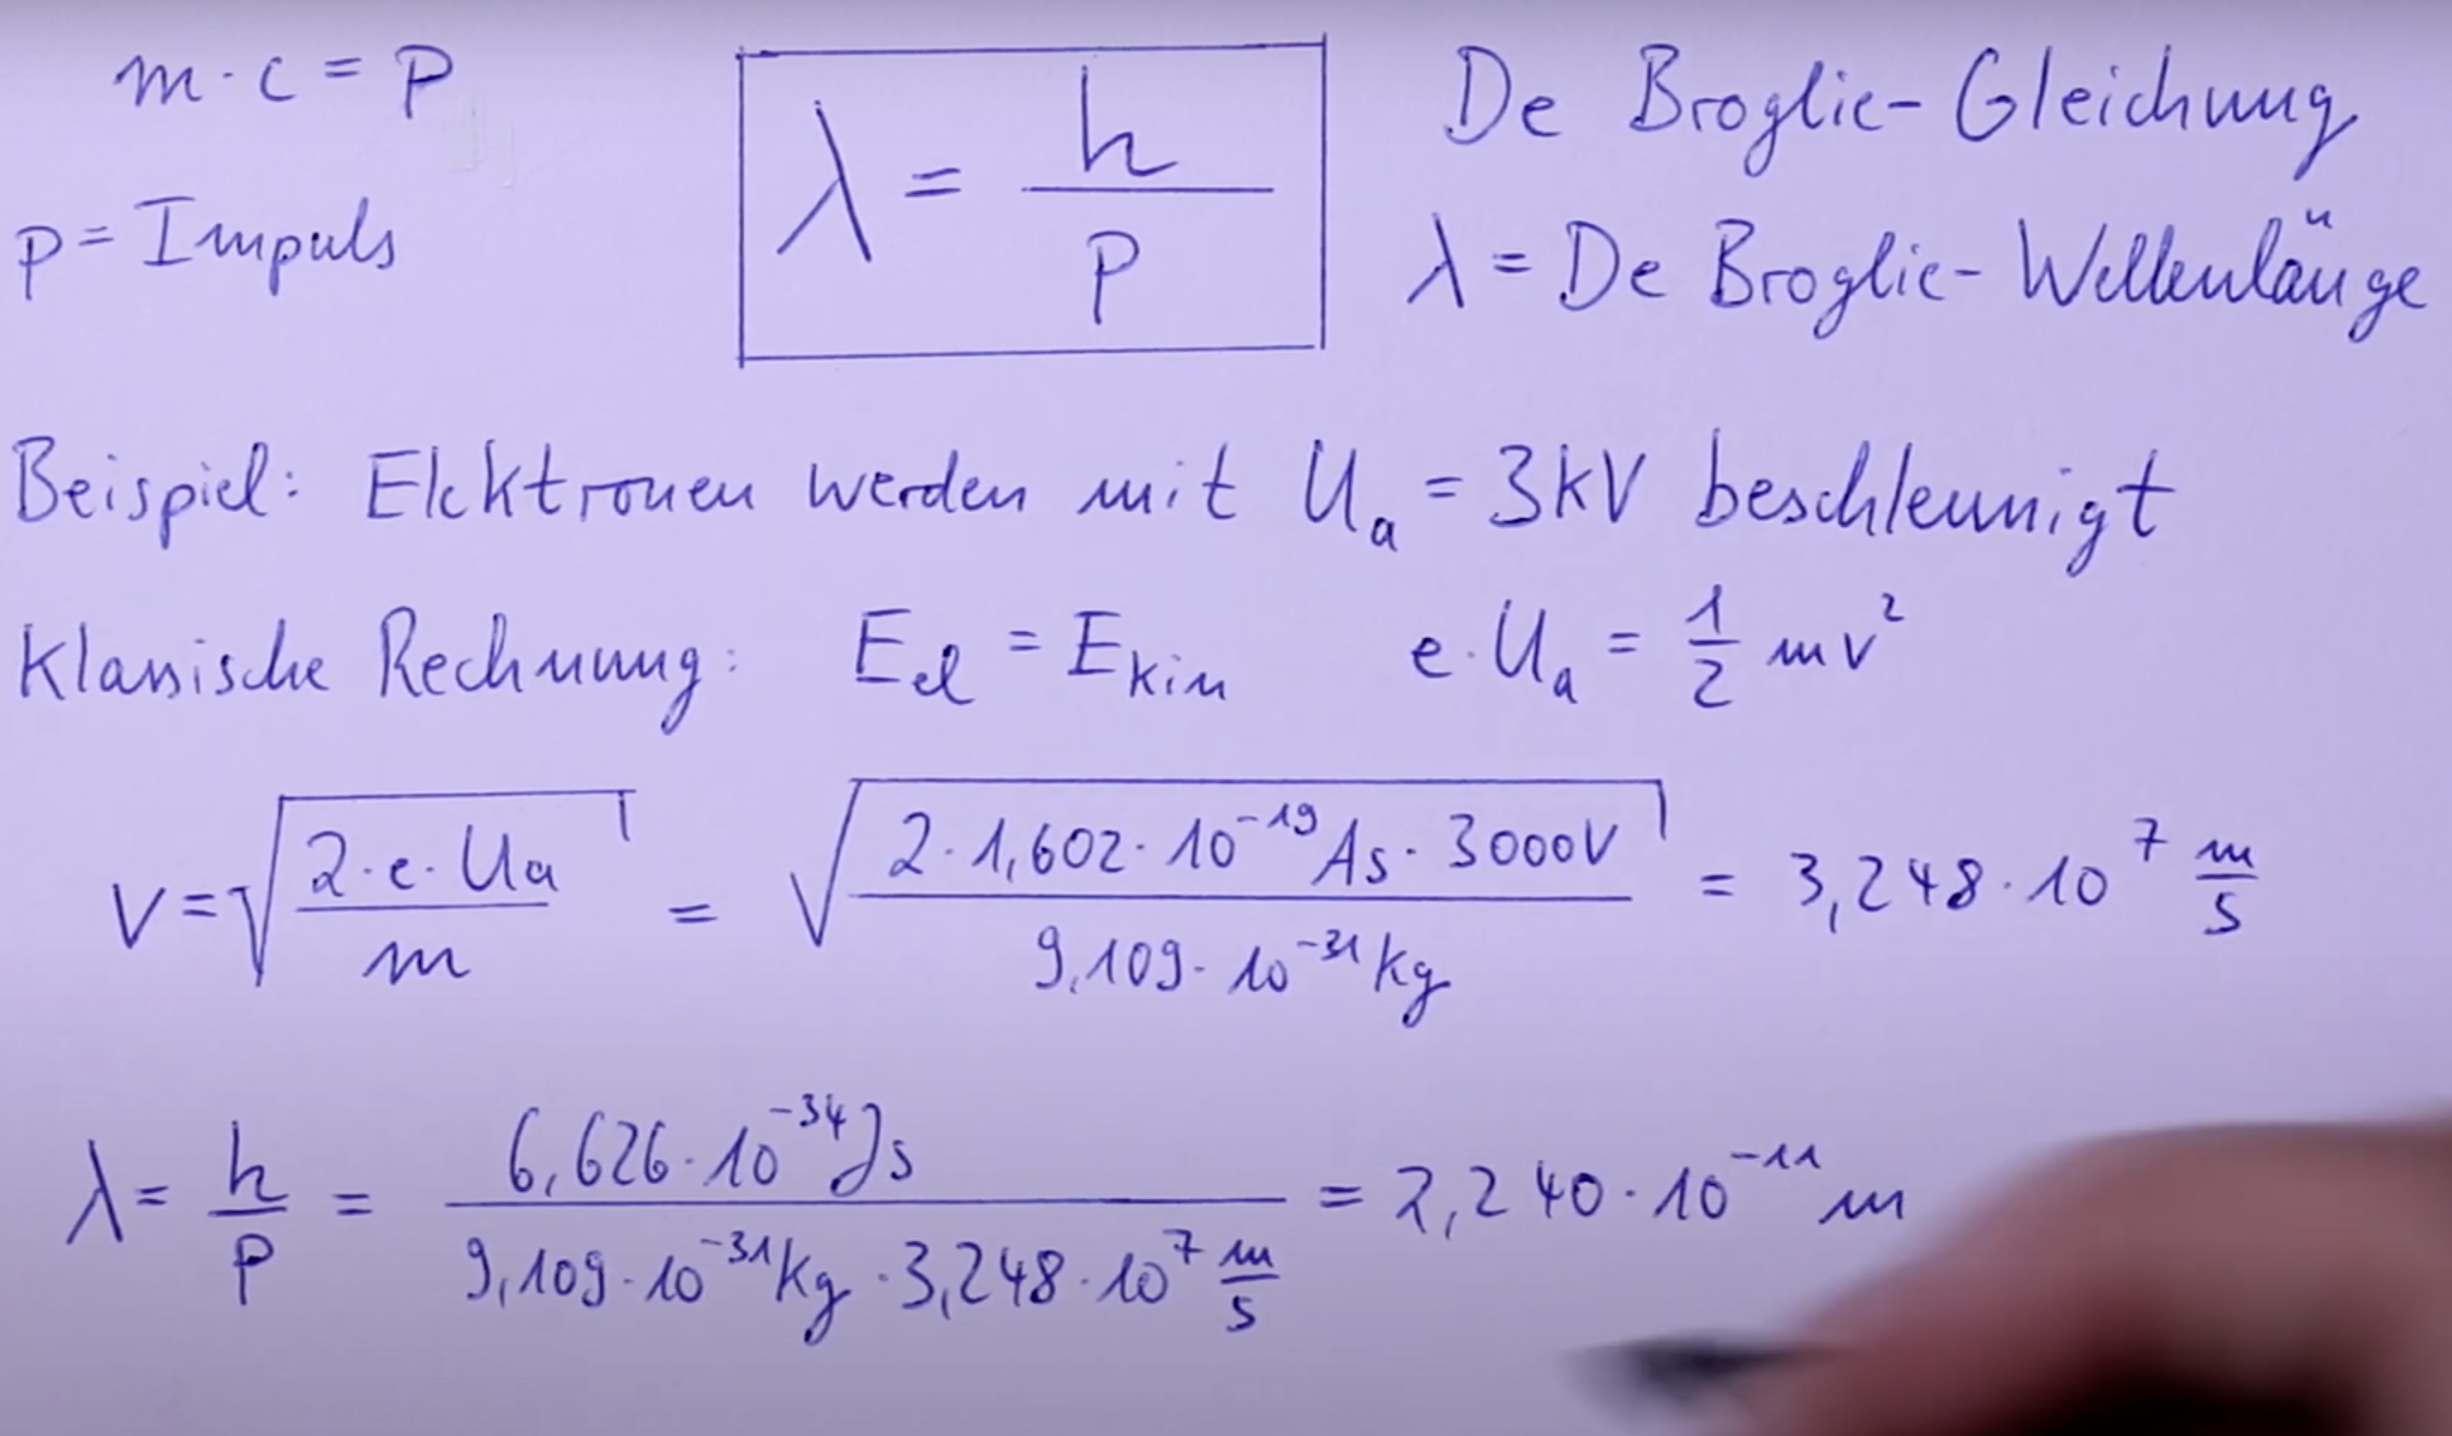 m · c = p
λ = h/p
De Broglie-Gleichung
p = Impuls
λ = De Broglie-Wellenlänge
Beispiel: Elektronen werden mit Uₐ = 3kV beschleunigt
Klassische Rechnung: E_el = E_kin e · Uₐ = 1/2 mv²
v = √(2 · e · Uₐ / m) = √(2 · 1,602 · 10⁻¹⁹ As · 3000V / 9,109 · 10⁻³¹ kg) = 3,248 · 10⁷ m/s
λ = h/p = 6,626 · 10⁻³⁴ Js / 9,109 · 10⁻³¹ kg · 3,248 · 10⁷ m/s = 2,240 · 10⁻¹¹ m